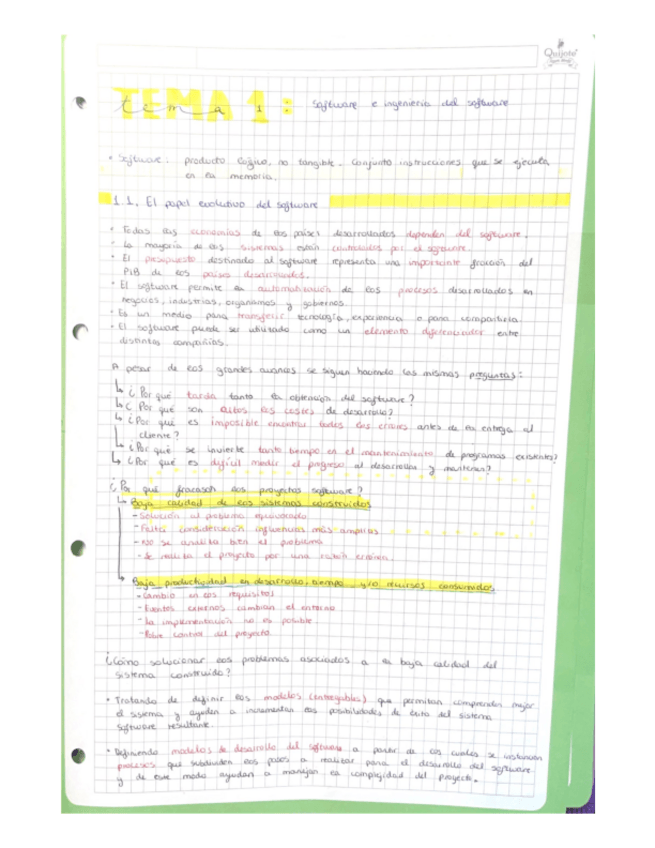 Quijote
TEMA 1: Software e ingeniería del software
tema
• Software: producto lógico, no tangible. Conjunto instrucciones que se ejecuta
en la memoria.
1.1. El papel evolutivo del software
• Todas las economías de los países desarrollados dependen del software.
• La mayoría de los sistemas están controlados por el software.
• El presupuesto destinado al software representa una importante fracción del
PIB de los países desarrollados.
• El software permite la automatización de los procesos desarrollados en
negocios, industrias, organismos y gobiernos.
• Es un medio para transferir tecnología, experiencia o para compartirla.
• El software puede ser utilizado como un elemento diferenciador entre
distintas compañías.
A pesar de los grandes avances se siguen haciendo las mismas preguntas:
↳ ¿Por qué tarda tanto la obtención del software?
↳ ¿Por qué son altos los costes de desarrollo?
↳ ¿Por qué es imposible encontrar todos los errores antes de la entrega al
cliente?
↳ ¿Por qué se invierte tanto tiempo en el mantenimiento de programas existentes?
↳ ¿Por qué es difícil medir el progreso al desarrollar y mantener?
¿Por qué fracasan los proyectos software?
↳ Baja calidad de los sistemas construidos
- Solución al problema equivocado
- Falta consideración influencias más amplias
- No se analiza bien el problema
- Se realiza el proyecto por una razón errónea.
↳ Baja productividad en desarrollo, tiempo y/o recursos consumidos
- Cambio en los requisitos
- Eventos externos cambian el entorno
- La implementación no es posible
- Pobre control del proyecto
¿Cómo solucionar los problemas asociados a la baja calidad del
sistema construido?
• Tratando de definir los modelos (entregables) que permitan comprender mejor
el sistema y ayuden a incrementar las posibilidades de éxito del sistema
software resultante.
• Definiendo modelos de desarrollo del software a partir de los cuales se instancian
procesos que subdividen los pasos a realizar para el desarrollo del software
y de este modo ayudan a manejar la complejidad del proyecto.